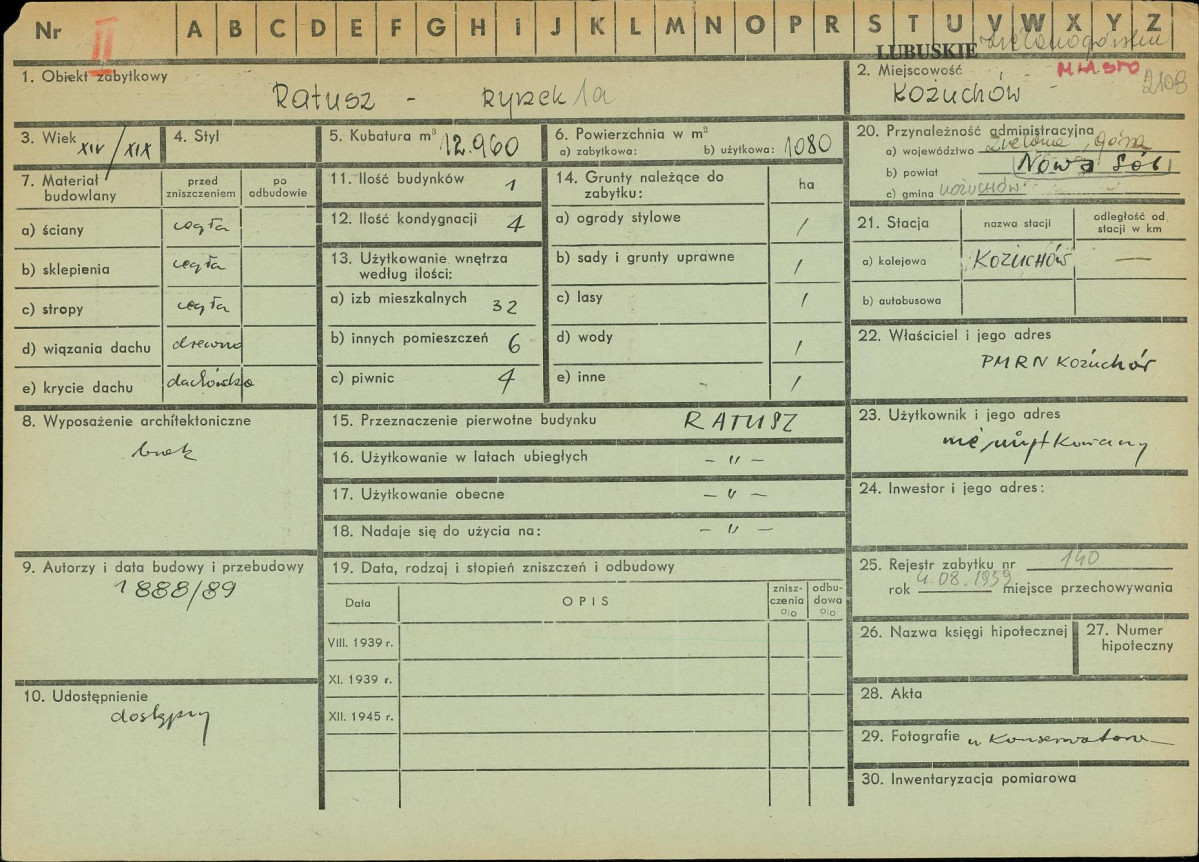 Nr II A B C D E F G H i J K L M N O P R S T U V W X Y Z
LUBUSKIE
MIASTO 2108
1. Obiekt zabytkowy
Ratusz - rynek 1a
2. Miejscowość
Kożuchów
3. Wiek XIV/XIX
4. Styl
5. Kubatura m³ 12.960
6. Powierzchnia w m²
a) zabytkowa: b) użytkowa: 1080
7. Materiał budowlany
przed zniszczeniem
po odbudowie
a) ściany cegła
b) sklepienia cegła
c) stropy cegła
d) wiązania dachu drewno
e) krycie dachu dachówka
8. Wyposażenie architektoniczne
brak
9. Autorzy i data budowy i przebudowy
1888/89
10. Udostępnienie
dostępny
11. Ilość budynków 1
12. Ilość kondygnacji 4
13. Użytkowanie wnętrza
według ilości:
a) izb mieszkalnych 32
b) innych pomieszczeń 6
c) piwnic 4
14. Grunty należące do
zabytku:
ha
a) ogrody stylowe /
b) sady i grunty uprawne /
c) lasy /
d) wody /
e) inne - /
15. Przeznaczenie pierwotne budynku RATUSZ
16. Użytkowanie w latach ubiegłych – " –
17. Użytkowanie obecne – " –
18. Nadaje się do użycia na: – " –
19. Data, rodzaj i stopień zniszczeń i odbudowy
Data
OPIS
znisz-
czenia
%
odbu-
dowa
%
VIII. 1939 r.
XI. 1939 r.
XII. 1945 r.
20. Przynależność administracyjna
a) województwo Zielona Góra
b) powiat Nowa Sól
c) gmina Kożuchów
21. Stacja
nazwa stacji
odległość od
stacji w km
a) kolejowa Kożuchów —
b) autobusowa
22. Właściciel i jego adres
PMRN Kożuchów
23. Użytkownik i jego adres
nie użytkowany
24. Inwestor i jego adres:
25. Rejestr zabytku nr 140
rok 4.08.1959 miejsce przechowywania
26. Nazwa księgi hipotecznej
27. Numer
hipoteczny
28. Akta
29. Fotografie u Konserwatora
30. Inwentaryzacja pomiarowa